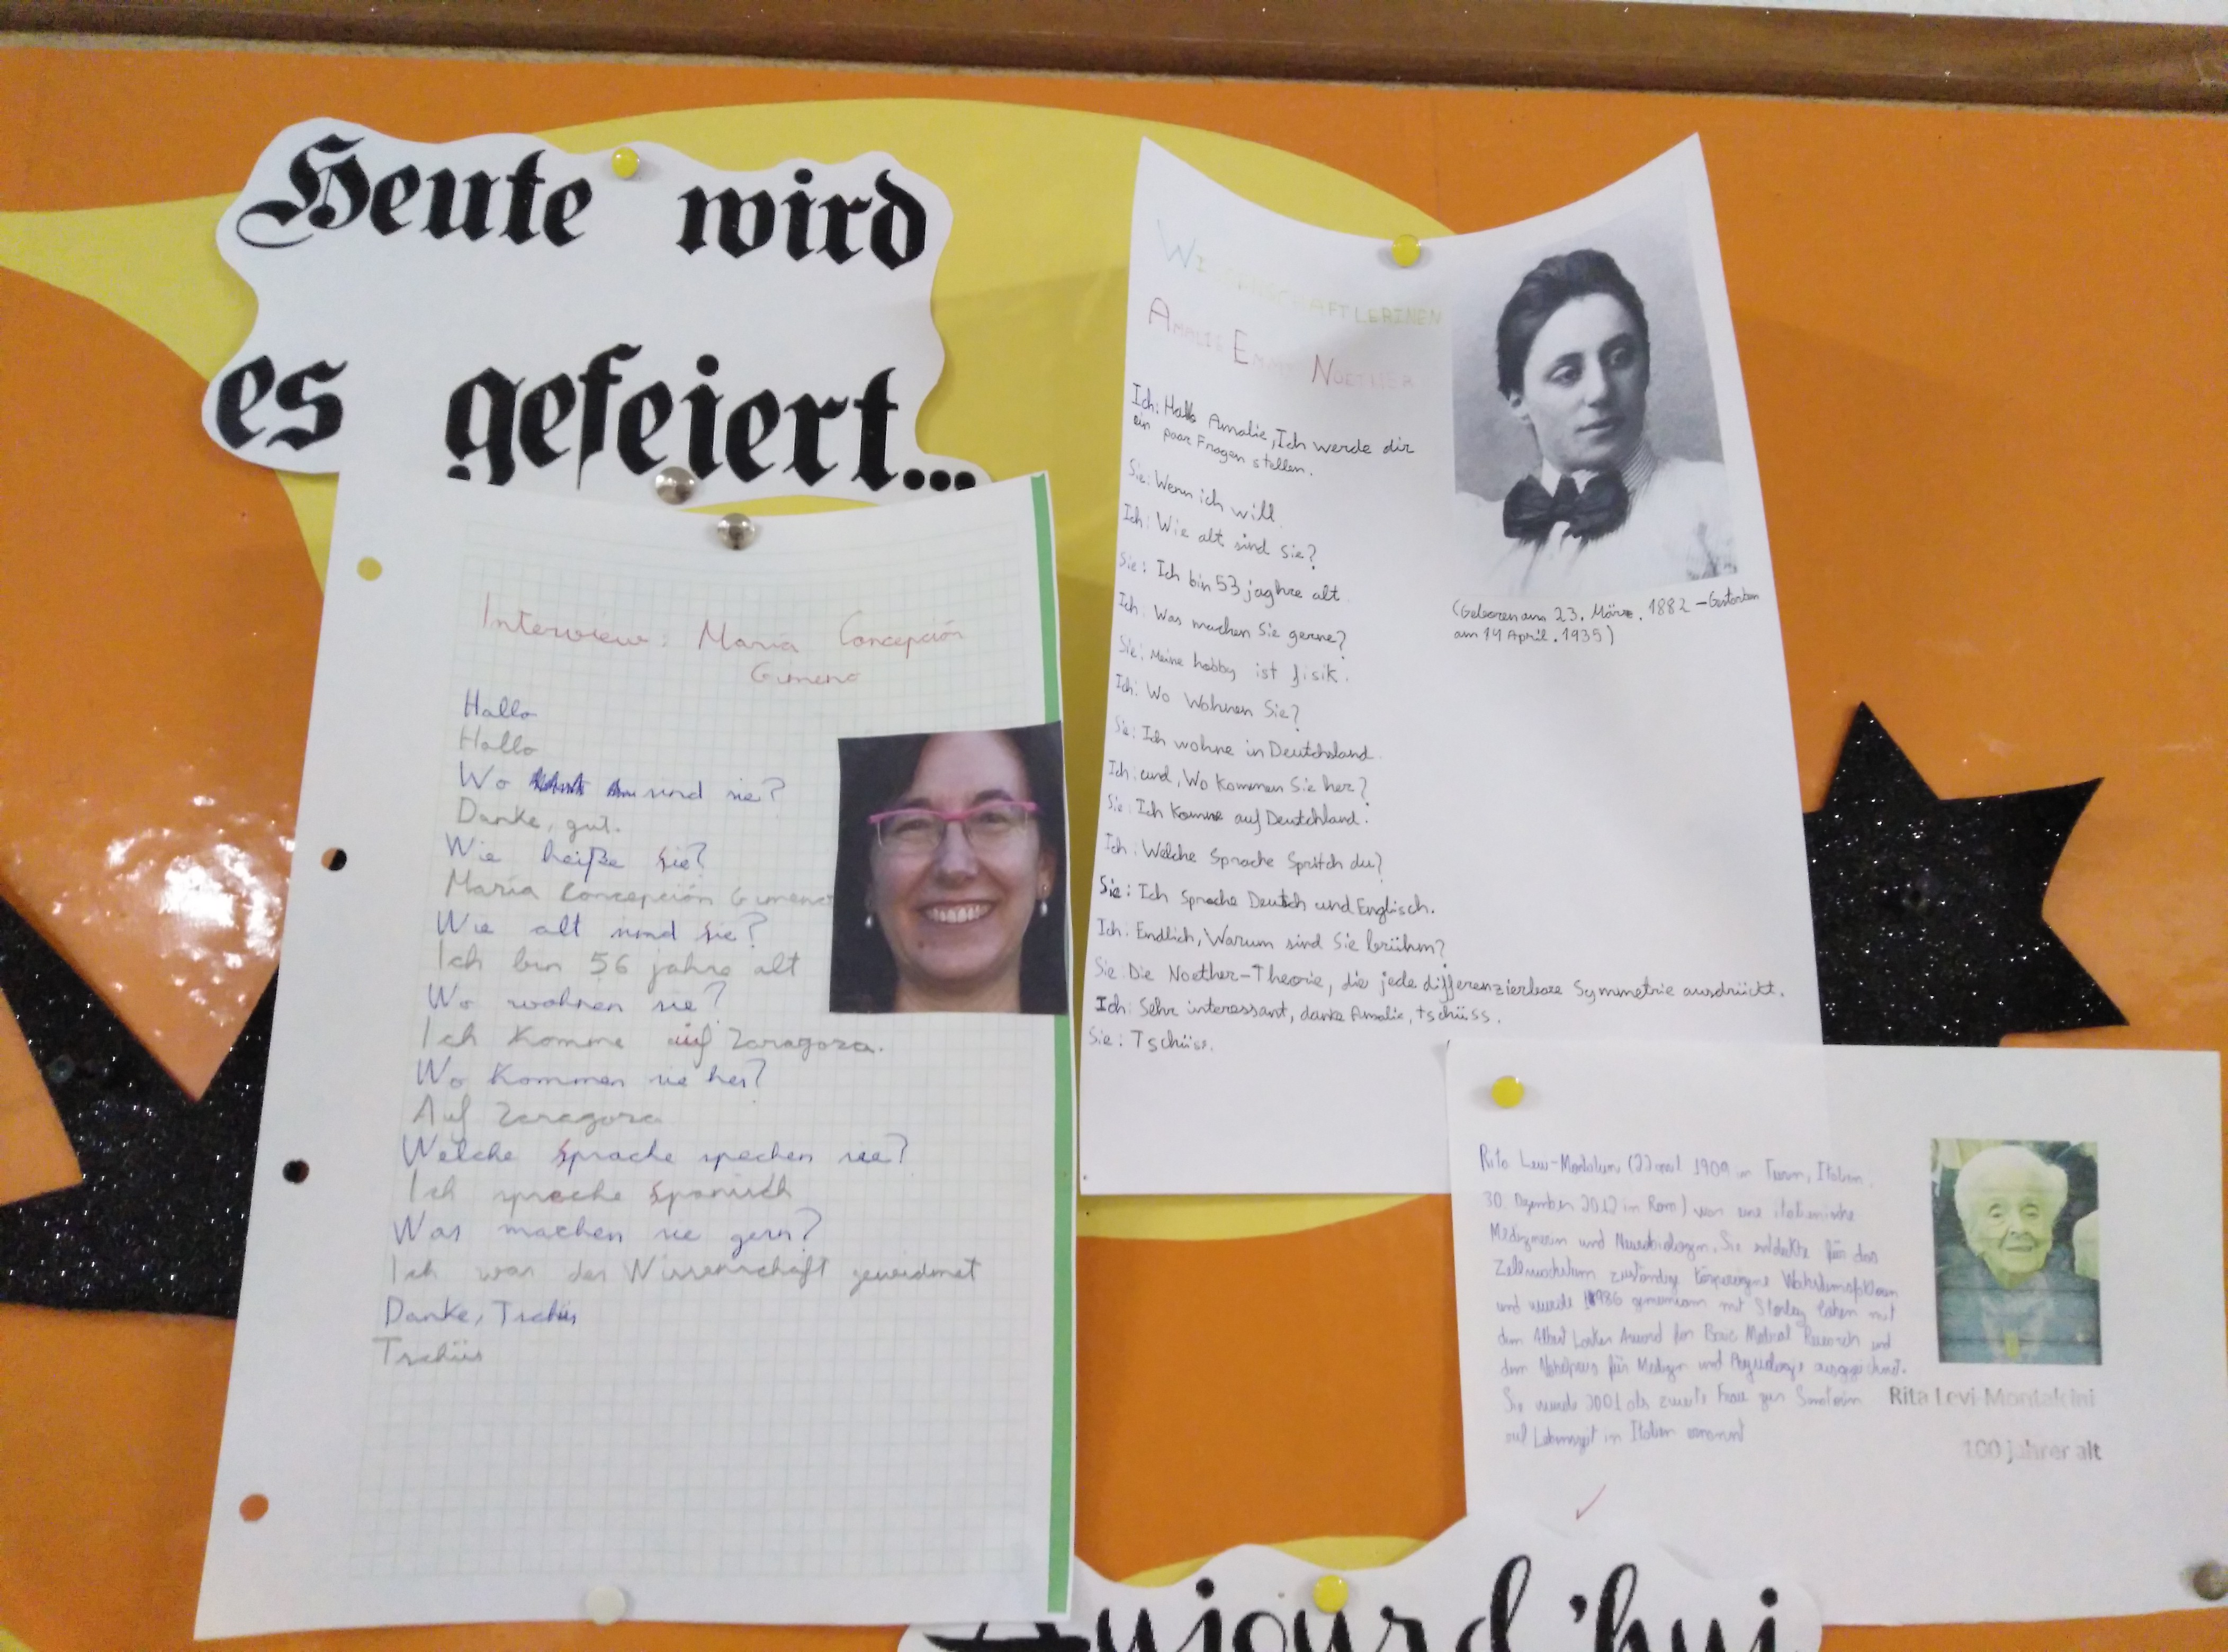 Heute wird
es gefeiert...
Interview: María Concepción
Gimeno
Hallo
Hallo
Wo sind sie?
Danke, gut.
Wie heiße sie?
María Concepción Gimeno
Wie alt sind sie?
Ich bin 56 jahre alt
Wo wohnen sie?
Ich komme auf Zaragoza.
Wo kommen sie her?
Auf Zaragoza
Welche Sprache spechen sie?
Ich spreche Spanisch
Was machen sie gern?
Ich war der Wissenschaft gewidmet
Danke, Tschüs
Tschüs
WISSENSCHAFTLERINEN
AMALIE EMMY NOETHER
Ich: Hallo Amalie, Ich werde dir
ein paar Fragen stellen.
Sie: Wenn ich will.
Ich: Wie alt sind Sie?
Sie: Ich bin 53 jaghre alt.
Ich: Was machen Sie gerne?
Sie: Meine hobby ist fisik.
Ich: Wo Wohnen Sie?
Sie: Ich wohne in Deutchsland.
Ich: und, Wo Kommen Sie her?
Sie: Ich Komme auf Deutchland.
Ich: Welche Sprache Spritch du?
Sie: Ich Sprache Deutch und Englisch.
Ich: Endlich, Warum sind Sie brühm?
Sie: Die Noether-Theorie, die jede differenzierbare Symmetrie ausdrückt.
Ich: Sehr interessant, danke Amalie, tschüss.
Sie: Tschüss.
(Geboren am 23. März. 1882 - Gestorben
am 14 April. 1935)
Rita 1909 in Turin, Italien
30. Dezember 2012 in Rom) war eine italienische
Medizinerin und Neurobiologin. Sie entdeckte für das
Zellwachstum zuständige körpereigene
und wurde 1986 gemeinsam mit Stanley Cohen mit
dem Albert Award for Medical Research und
dem für Medizin und ausgezeichnet.
Sie wurde 2001 als zweite Frau zur Senatorin
auf Lebenszeit in Italien ernannt
Rita Levi Montalcini
100 jahrer alt
Aujourd'hui